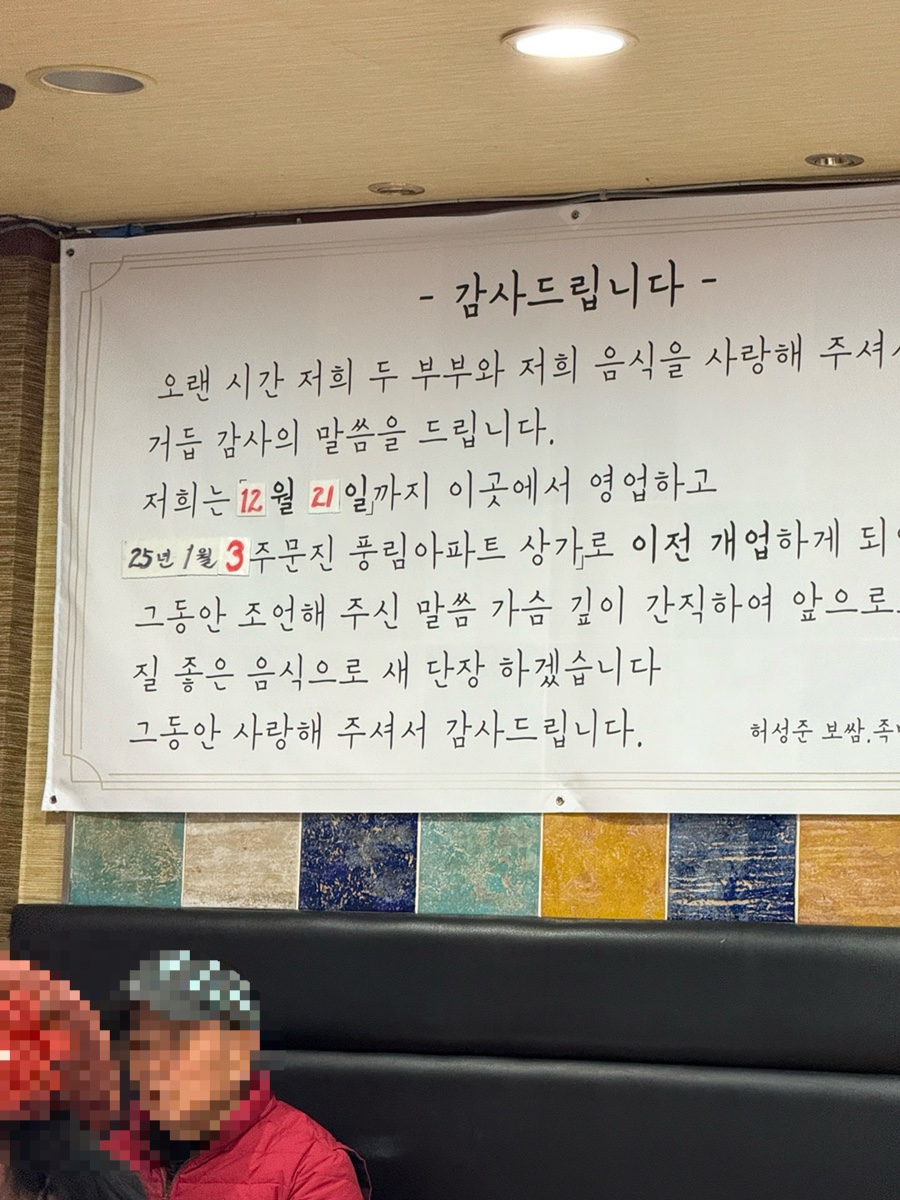 - 감사드립니다 -
오랜 시간 저희 두 부부와 저희 음식을 사랑해 주셔
거듭 감사의 말씀을 드립니다.
저희는「12월 21일」까지 이곳에서 영업하고
25년 1월 3 주문진 풍림아파트 상가」로 이전 개업하게
그동안 조언해 주신 말씀 가슴 깊이 간직하여 앞으로
질 좋은 음식으로 새 단장 하겠습니다
그동안 사랑해 주셔서 감사드립니다.
허성준 보쌈.